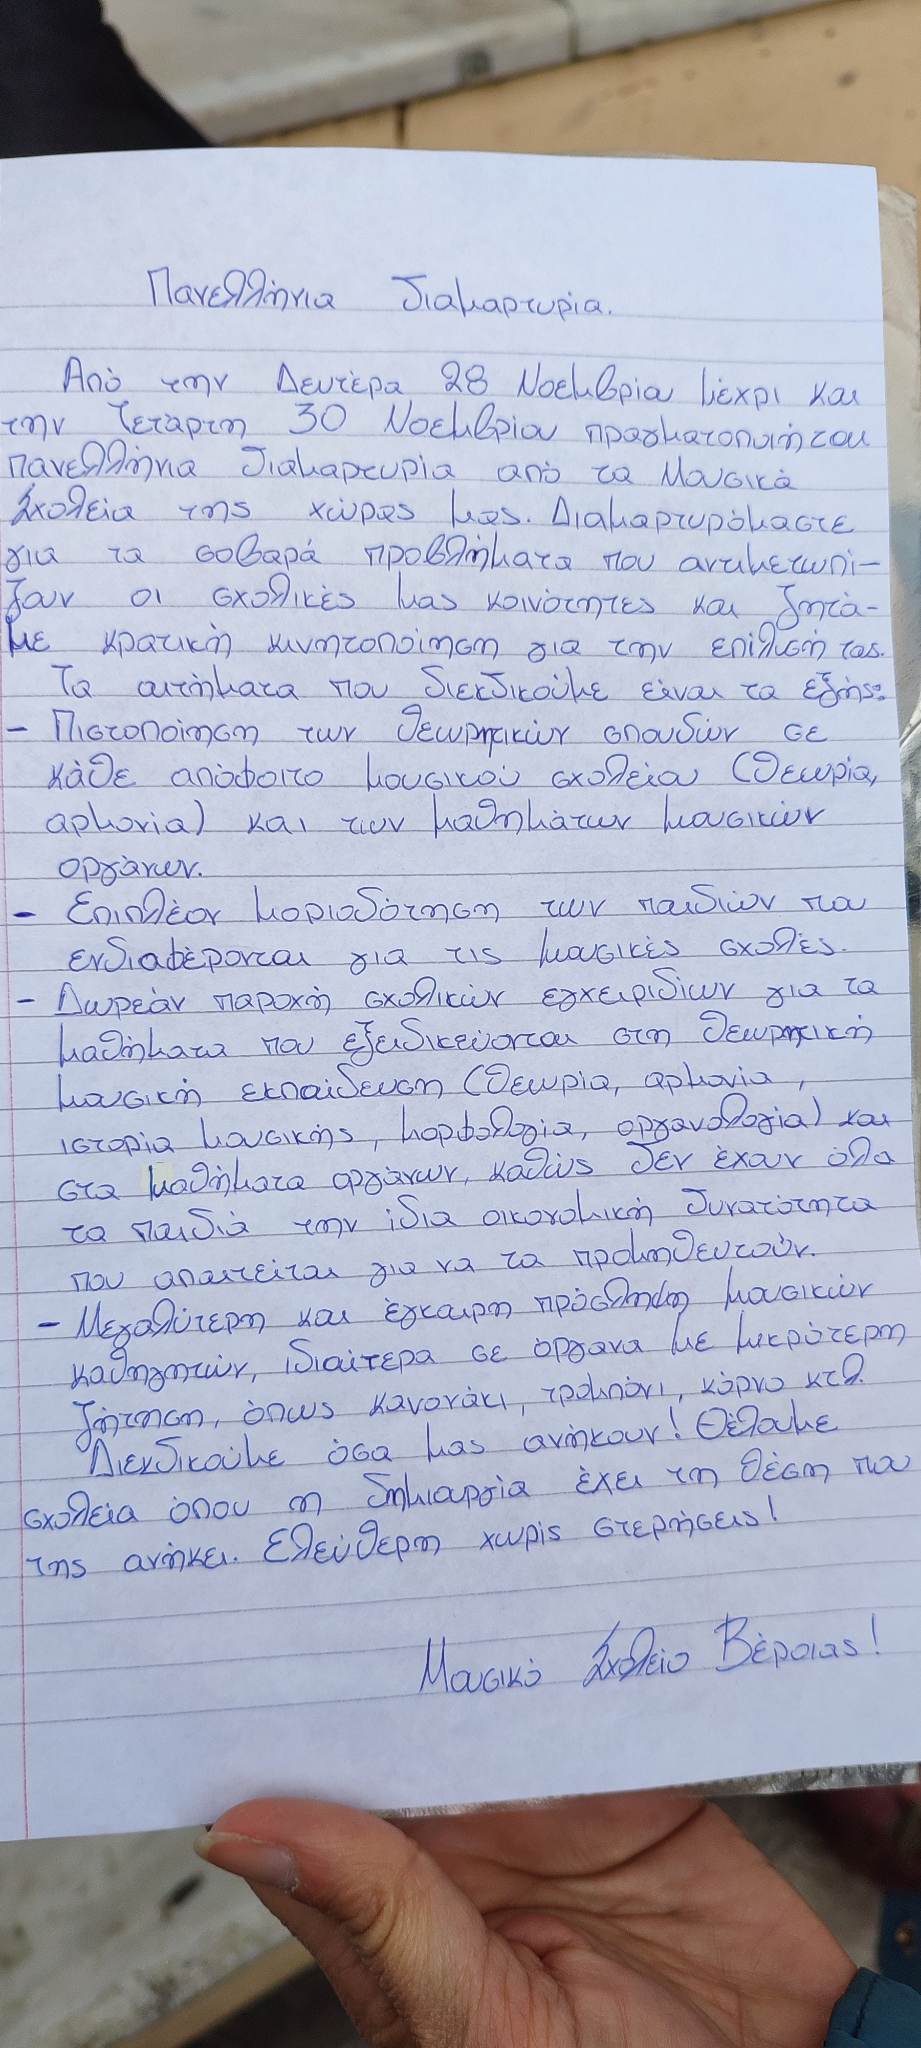 Πανελλήνια διαμαρτυρία.
Από την Δευτέρα 28 Νοεμβρίου μέχρι και
την Τετάρτη 30 Νοεμβρίου πραγματοποιήται
πανελλήνια διαμαρτυρία από τα Μουσικά
Σχολεία της χώρας μας. Διαμαρτυρόμαστε
για τα σοβαρά προβλήματα που αντιμετωπί-
ζουν οι σχολικές μας κοινότητες και ζητά-
με κρατική κινητοποίηση για την επίλυσή τους.
Τα αιτήματα που διεκδικούμε είναι τα εξής:
- Πιστοποίηση των θεωρητικών σπουδών σε
κάθε απόφοιτο μουσικού σχολείου (θεωρία,
αρμονία) και των μαθημάτων μουσικών
οργάνων.
- Επιπλέον μοριοδότηση των παιδιών που
ενδιαφέρονται για τις μουσικές σχολές.
- Δωρεάν παροχή σχολικών εγχειριδίων για τα
μαθήματα που εξειδικεύονται στη θεωρητική
μουσική εκπαίδευση (θεωρία, αρμονία,
ιστορία μουσικής, μορφολογία, οργανολογία) και
στα μαθήματα οργάνων, καθώς δεν έχουν όλα
τα παιδιά την ίδια οικονομική δυνατότητα
που απαιτείται για να τα προμηθευτούν.
- Μεγαλύτερη και έγκαιρη πρόσληψη μουσικών
καθηγητών, ιδιαίτερα σε όργανα με μικρότερη
ζήτηση, όπως κανονάκι, τρομπόνι, κόρνο κτλ.
Διεκδικούμε όσα μας ανήκουν! Θέλουμε
σχολεία όπου η δημιουργία έχει τη θέση που
της ανήκει. Ελεύθερη χωρίς στερήσεις!
Μουσικό Σχολείο Βέροιας!